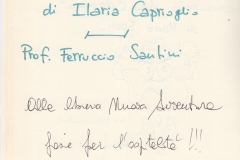 di Ilaria Caprioglio
Prof. Ferruccio Santini
Alla libreria Nuova Avventura
per l'ospitalità !!!